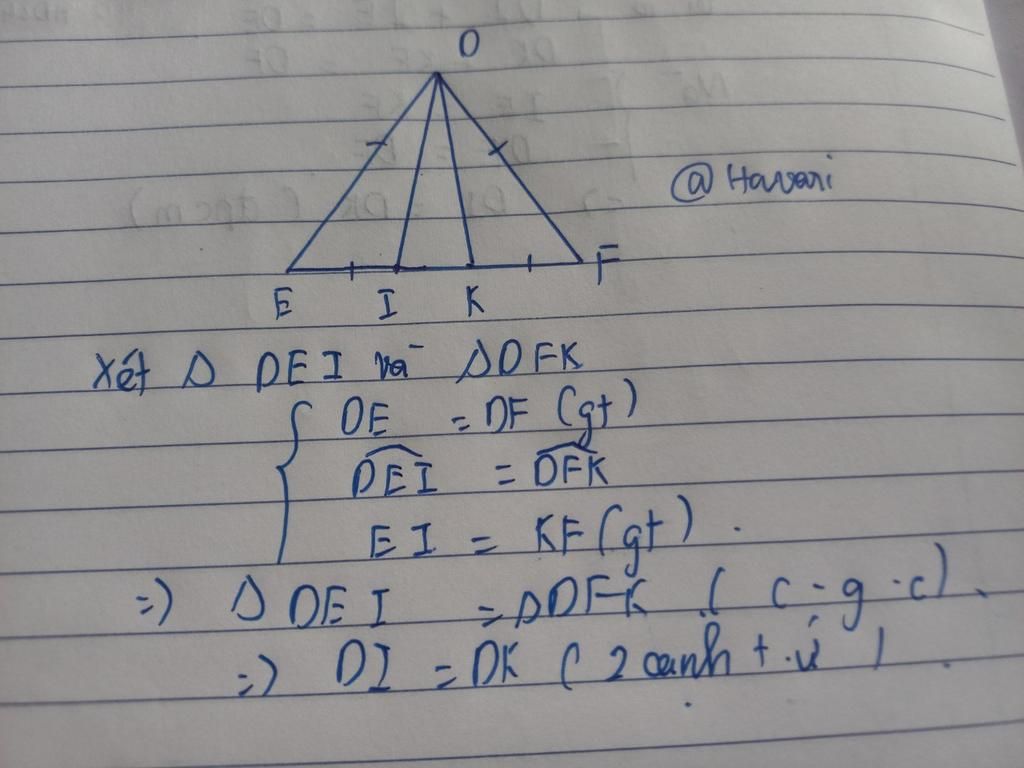 D
@Havari
E I K F
Xét Δ DEI và ΔDFK
DE = DF (gt)
DEI = DFK
EI = KF (gt) .
=) Δ DEI = ΔDFK ( c - g . c) .
=) DI = DK ( 2 cạnh t . ứ ) .